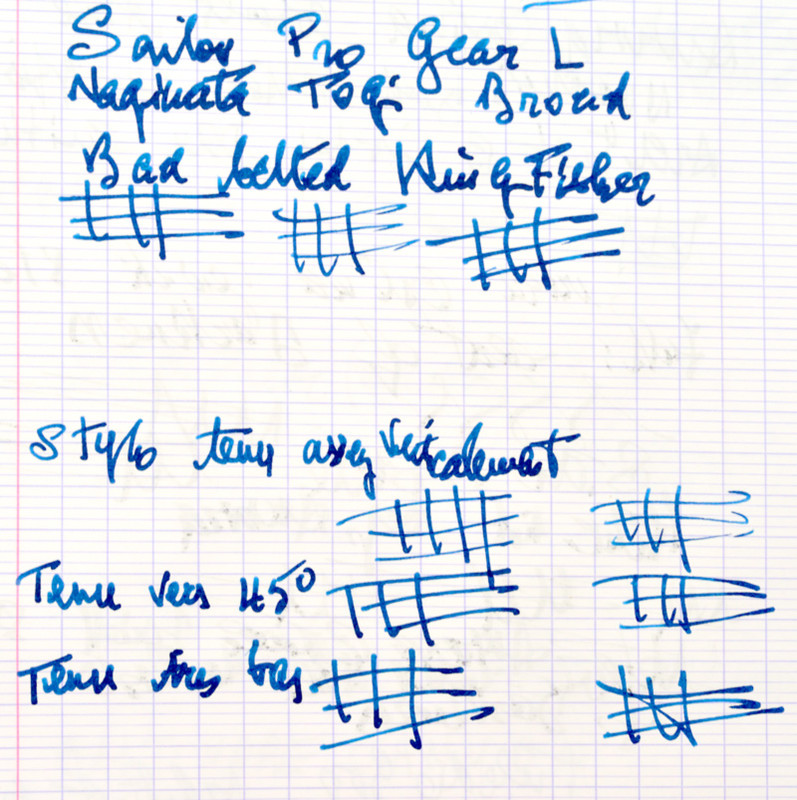 Sailor Pro Gear L
Naginata Togi Broad
Bad belted KingFisher
Stylo tenu assez verticalement
Tenu vers 45°
Tenu très bas